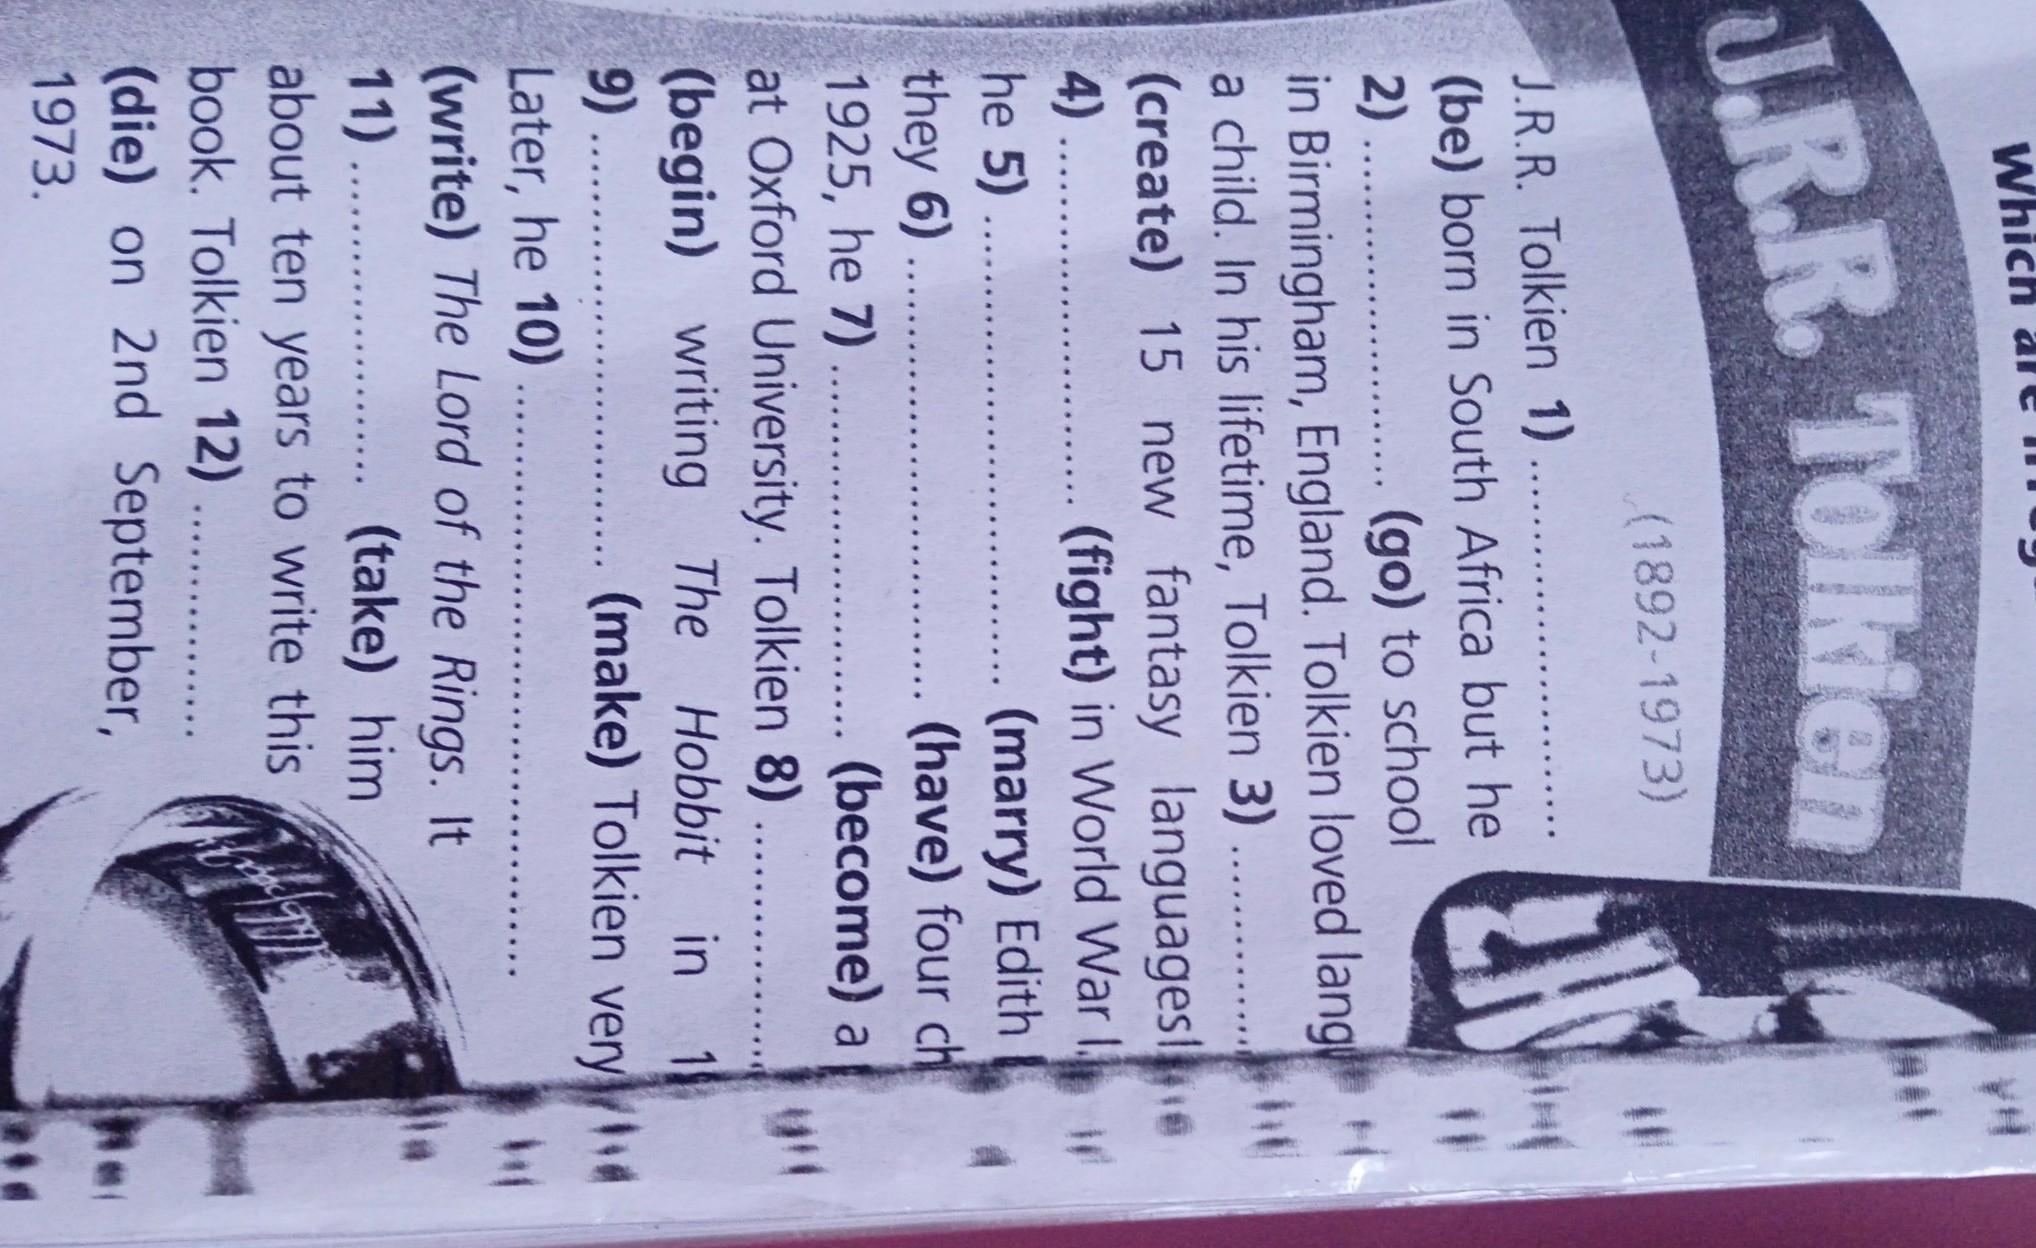 Which are
J.R.R. Tolkien
(1892-1973)
J.R.R. Tolkien 1) ..............................
(be) born in South Africa but he
2) .............................. (go) to school
in Birmingham, England. Tolkien loved
a child. In his lifetime, Tolkien 3) ................
(create) 15 new fantasy languages!
4) .............................. (fight) in World War I.
he 5) .............................. (marry) Edith
they 6) .............................. (have) four
1925, he 7) .............................. (become) a
at Oxford University. Tolkien 8) ....................
(begin) writing The Hobbit in
9) .............................. (make) Tolkien very
Later, he 10) ..............................
(write) The Lord of the Rings. It
11) .............................. (take) him
about ten years to write this
book. Tolkien 12) ....................
(die) on 2nd September,
1973.